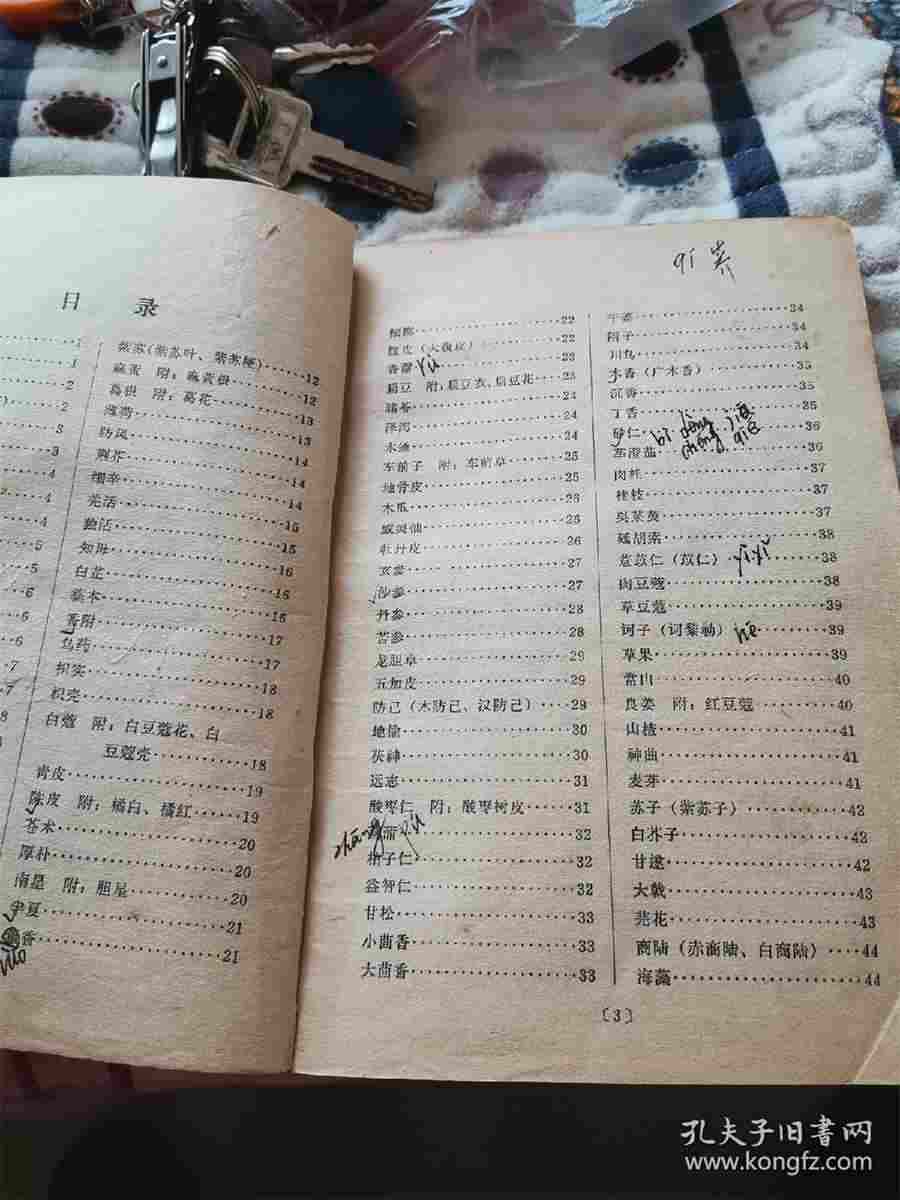 目 录
1
1
2
2
3
3
4
4
5
5
6
6
6
7
7
8
紫苏(紫苏叶、紫苏梗)……12
麻黄 附:麻黄根……12
葛根 附:葛花……13
薄荷……13
防风……14
荆芥……14
细辛……14
羌活……15
独活……15
知母……16
白芷……16
藁本……16
香附……17
乌药……17
枳实……18
枳壳……18
白蔻 附:白豆蔻花、白
豆蔻壳……18
青皮……19
陈皮 附:橘白、橘红……19
苍术……20
厚朴……20
南星 附:胆星……20
半夏……21
香……21
91
槟榔……22
腹皮(大腹皮)……22
香薷……23
rú
扁豆 附:扁豆衣、扁豆花……23
猪苓……24
泽泻……24
木通……24
车前子 附:车前草……25
地骨皮……25
木瓜……26
威灵仙……26
牡丹皮……26
玄参……27
沙参……27
丹参……28
苦参……28
龙胆草……29
五加皮……29
防己(木防己、汉防己)……29
地榆……30
茯神……30
远志……31
酸枣仁 附:酸枣树皮……31
蒲……32
柏子仁……32
益智仁……32
甘松……33
小茴香……33
大茴香……33
干姜……34
附子……34
川乌……34
木香(广木香)……35
沉香……35
丁香……35
砂仁……36
荜澄茄……36
bì dèng jiā
chéng qié
肉桂……37
桂枝……37
吴茱萸……37
延胡索……38
薏苡仁(苡仁)……38
yì yǐ
肉豆蔻……38
草豆蔻……39
诃子(诃黎勒)……39
hē
草果……39
常山……40
良姜 附:红豆蔻……40
山楂……41
神曲……41
麦芽……41
苏子(紫苏子)……42
白芥子……42
甘遂……42
大戟……43
芫花……43
商陆(赤商陆、白商陆)……44
海藻……44
〔3〕
孔夫子旧书网
www.kongfz.com